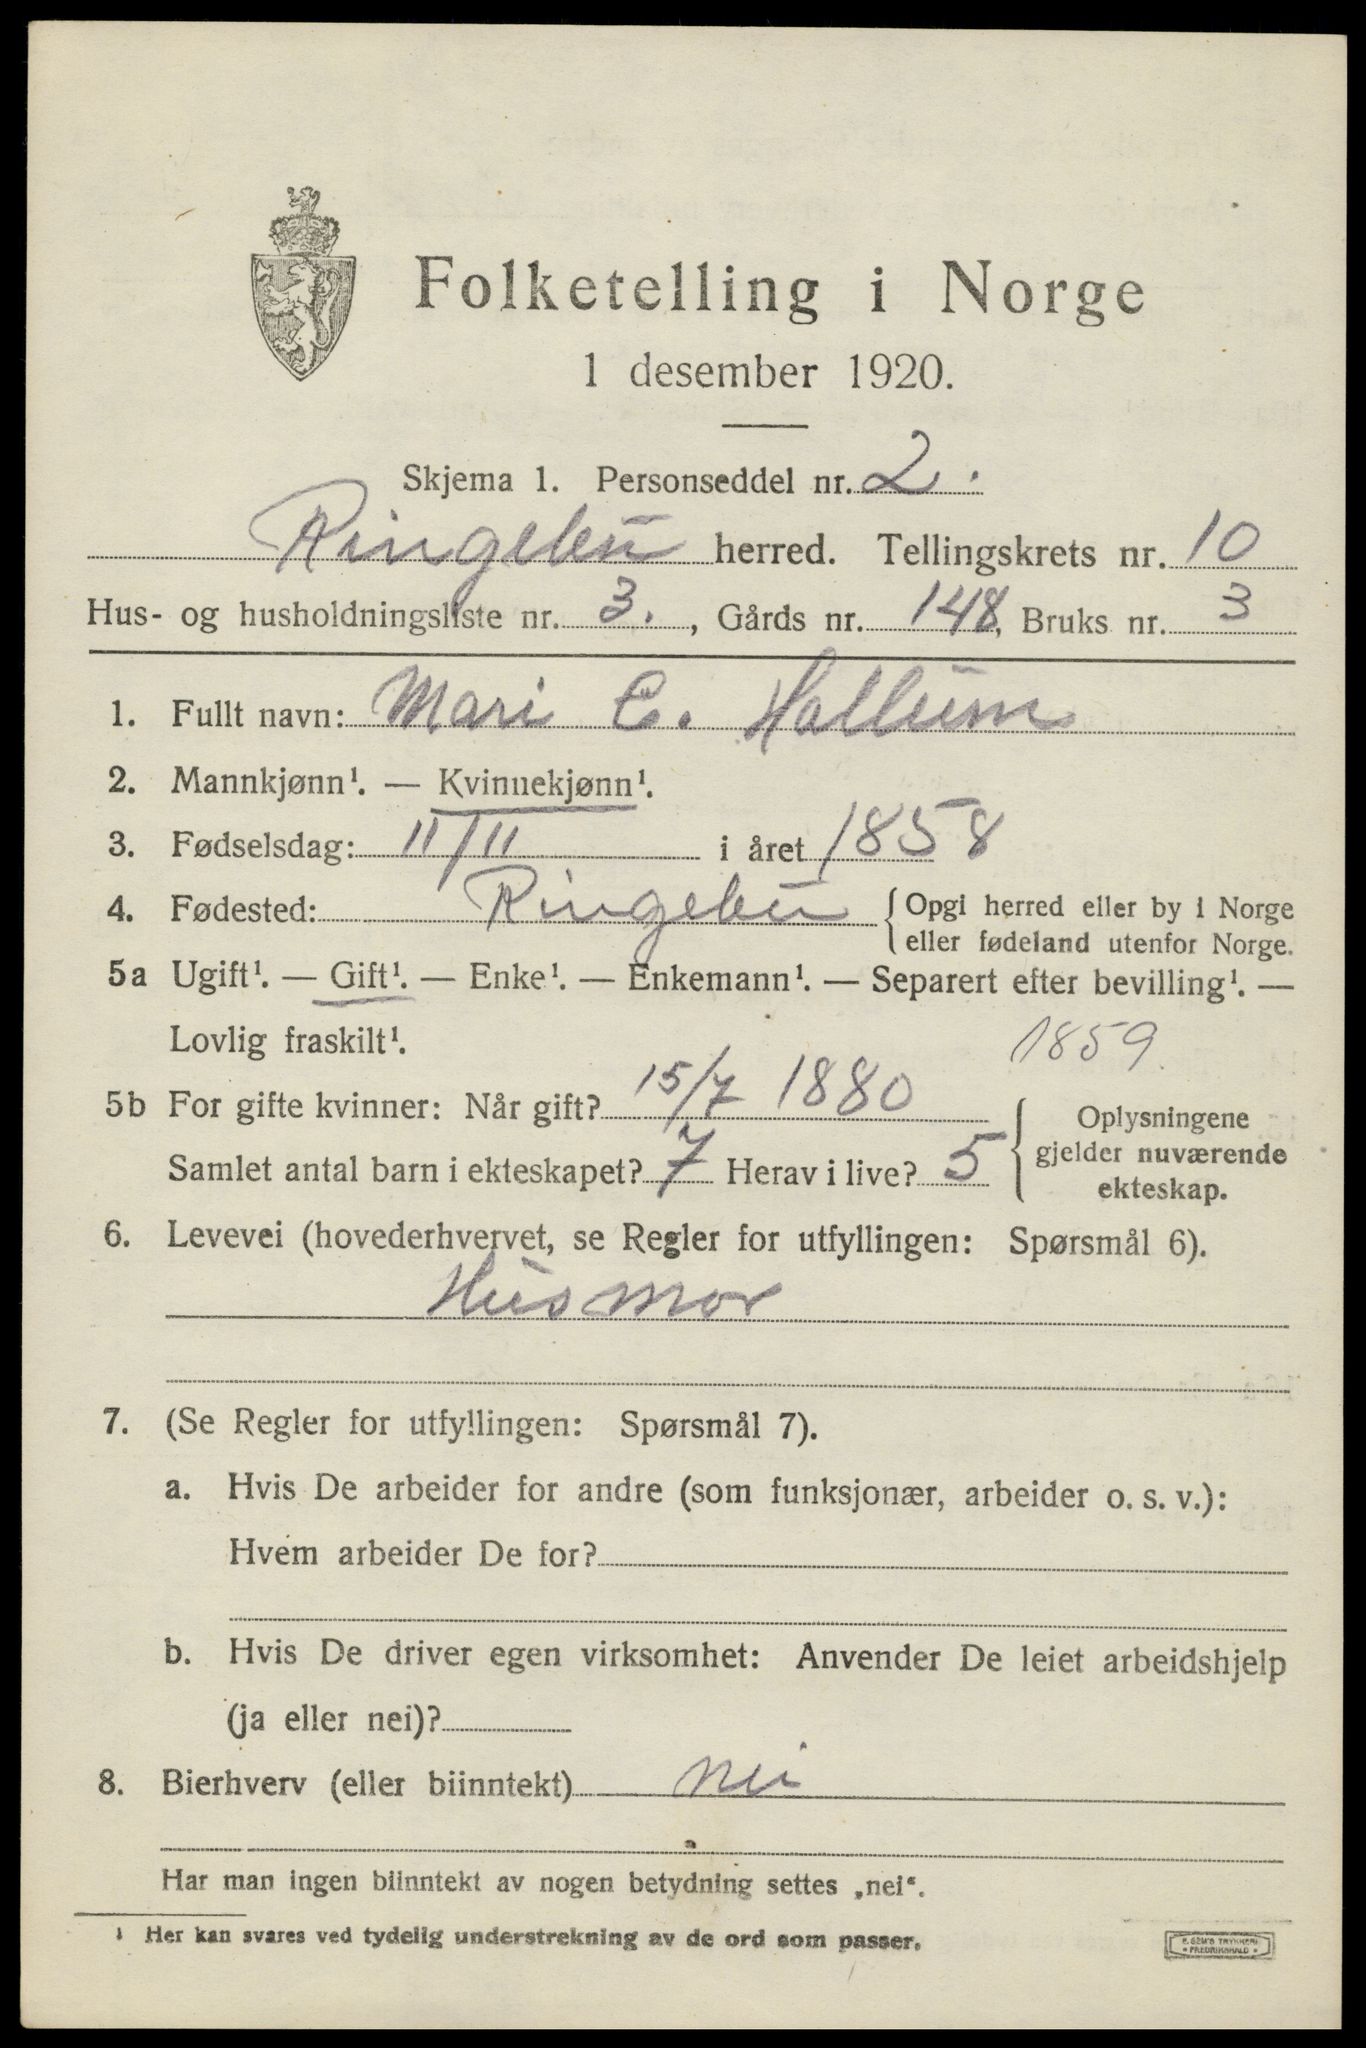 Folketelling i Norge
1 desember 1920.
Skjema 1. Personseddel nr. 2.
Ringebu herred. Tellingskrets nr. 10
Hus- og husholdningsliste nr. 3., Gårds nr. 148, Bruks nr. 3
1. Fullt navn: Mari E. Hallum
2. Mannkjønn¹. — Kvinnekjønn¹.
3. Fødselsdag: 11/11 i året 1858
4. Fødested: Ringebu { Opgi herred eller by i Norge
eller fødeland utenfor Norge.
5a Ugift¹. — Gift¹. — Enke¹. — Enkemann¹. — Separert efter bevilling¹. —
Lovlig fraskilt¹. 1859
5b For gifte kvinner: Når gift? 15/7 1880
Samlet antal barn i ekteskapet? 7 Herav i live? 5
{ Oplysningene
gjelder nuværende
ekteskap.
6. Levevei (hovederhvervet, se Regler for utfyllingen: Spørsmål 6).
Husmor
7. (Se Regler for utfyllingen: Spørsmål 7).
a. Hvis De arbeider for andre (som funksjonær, arbeider o. s. v.):
Hvem arbeider De for?
b. Hvis De driver egen virksomhet: Anvender De leiet arbeidshjelp
(ja eller nei)?
8. Bierhverv (eller biinntekt) nei
Har man ingen biinntekt av nogen betydning settes „nei“.
¹ Her kan svares ved tydelig understrekning av de ord som passer.
E. SEM'S TRYKKERI
• FREDRIKSHALD •